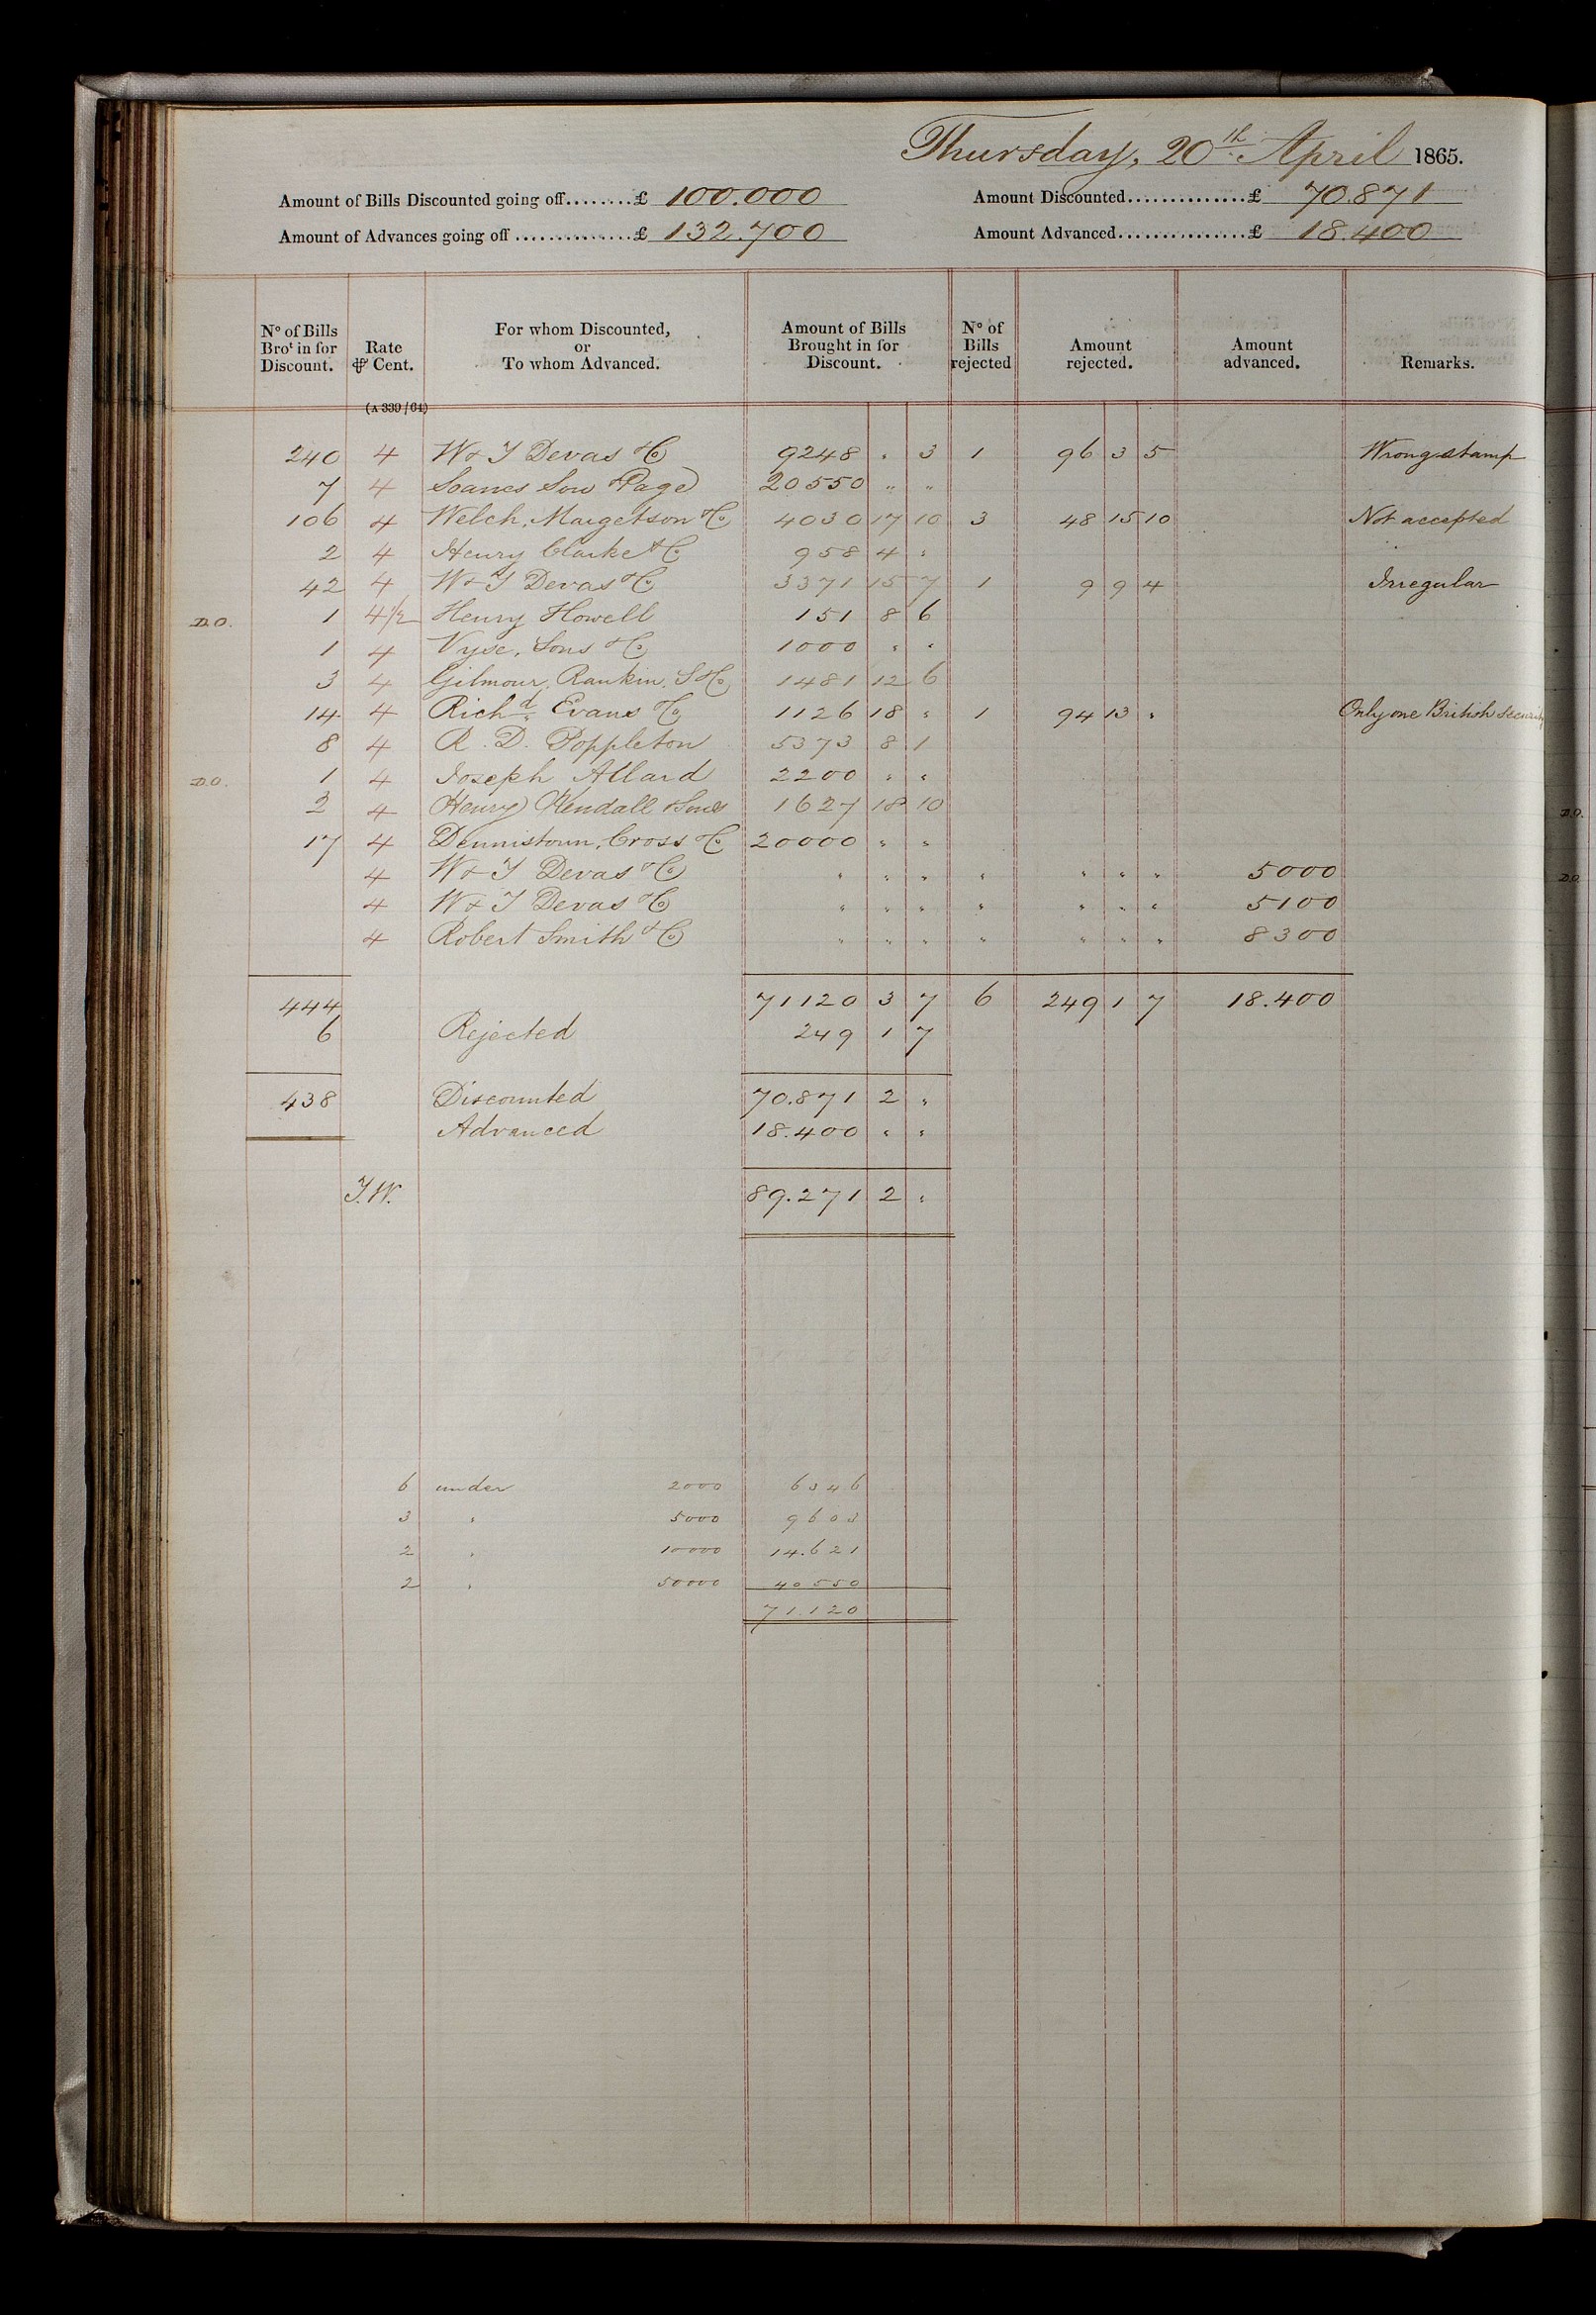 Thursday, 20th April 1865.
Amount of Bills Discounted going off........£ 100.000 Amount Discounted..............£ 70.871
Amount of Advances going off ..............£ 132.700 Amount Advanced...............£ 18.400
No of Bills Brot in for Discount. Rate ⅌ Cent. For whom Discounted, or To whom Advanced. Amount of Bills Brought in for Discount. No of Bills rejected Amount rejected. Amount advanced. Remarks.
(A 339/64)
240 4 W & T Devas & Co 9248 " 3 1 96 3 5 Wrong stamp
7 4 Soanes Son & Page 20550 " "
106 4 Welch, Margetson & Co 4030 17 10 3 48 15 10 Not accepted
2 4 Henry Clarke & Co 958 4 "
42 4 W & T Devas & Co 3371 15 7 1 9 9 4 Irregular
D.O. 1 4 1/2 Henry Howell 151 8 6
1 4 Vyse, Sons & Co 1000 " "
3 4 Gilmour, Rankin, S & Co 1481 12 6
14 4 Richd Evans & Co 1126 18 " 1 94 13 " Only one British security
8 4 R. D. Poppleton 5373 8 1
D.O. 1 4 Joseph Allard 2200 " "
2 4 Henry Kendall & Sons 1627 18 10
17 4 Dennistoun, Cross & Co 20000 " "
4 W & T Devas & Co " " " " " " " 5000
4 W & T Devas & Co " " " " " " " 5100
4 Robert Smith & Co " " " " " " " 8300
444 71120 3 7 6 249 1 7 18.400
6 Rejected 249 1 7
438 Discounted 70.871 2 "
Advanced 18.400 " "
T.W. 89.271 2 "
6 under 2000 6346
3 " 5000 9603
2 " 10000 14.621
2 " 50000 40550
71.120
D.O.
D.O.